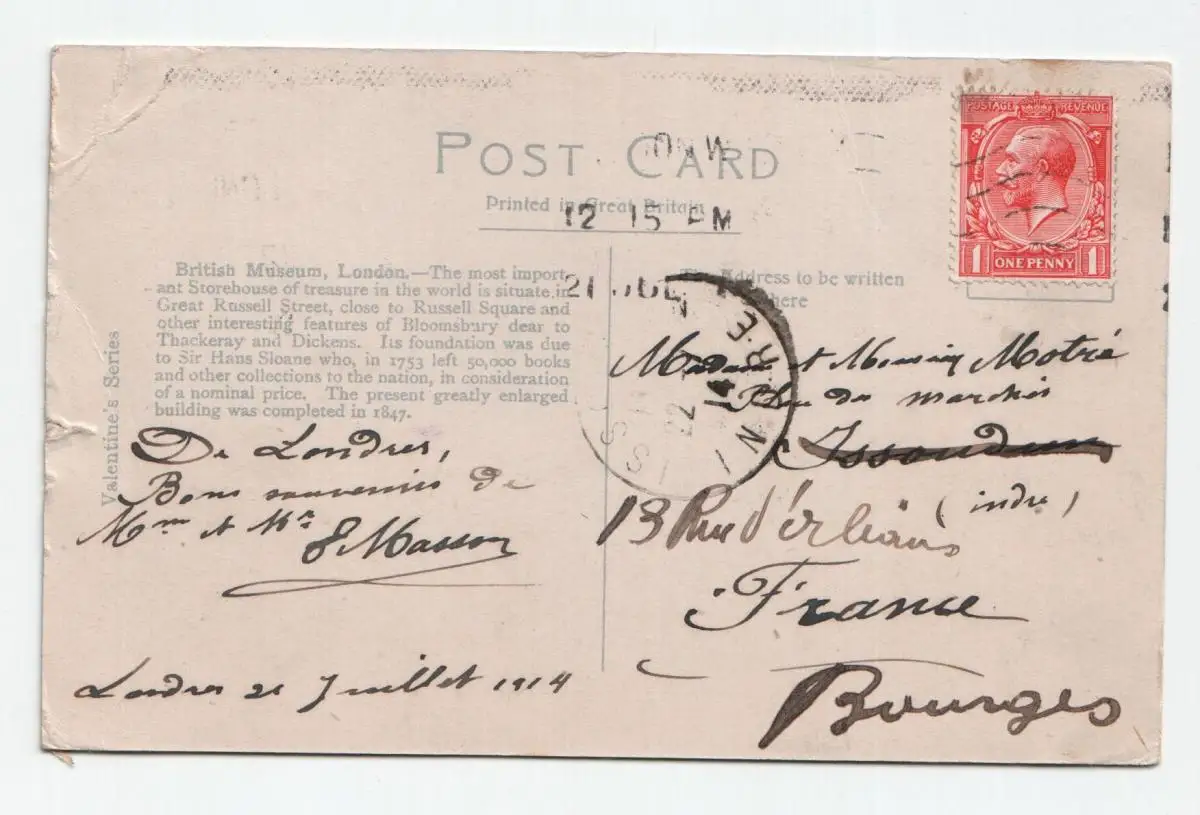 POST CARD
Printed in Great Britain
12 15 PM
21 JUL
POSTAGE REVENUE
1 ONE PENNY 1
British Museum, London.—The most import-
ant Storehouse of treasure in the world is situate in
Great Russell Street, close to Russell Square and
other interesting features of Bloomsbury dear to
Thackeray and Dickens. Its foundation was due
to Sir Hans Sloane who, in 1753 left 50,000 books
and other collections to the nation, in consideration
of a nominal price. The present greatly enlarged
building was completed in 1847.
Valentine's Series
The Address to be written
here
De Londres,
Bons souvenirs de
Mme et Mr
Masson
Londres 21 Juillet 1914
Madame et Motré
Place des marchés
Issoudun
(indre)
13 Rue d'orléans
France
Bourges
22
14
INDRE